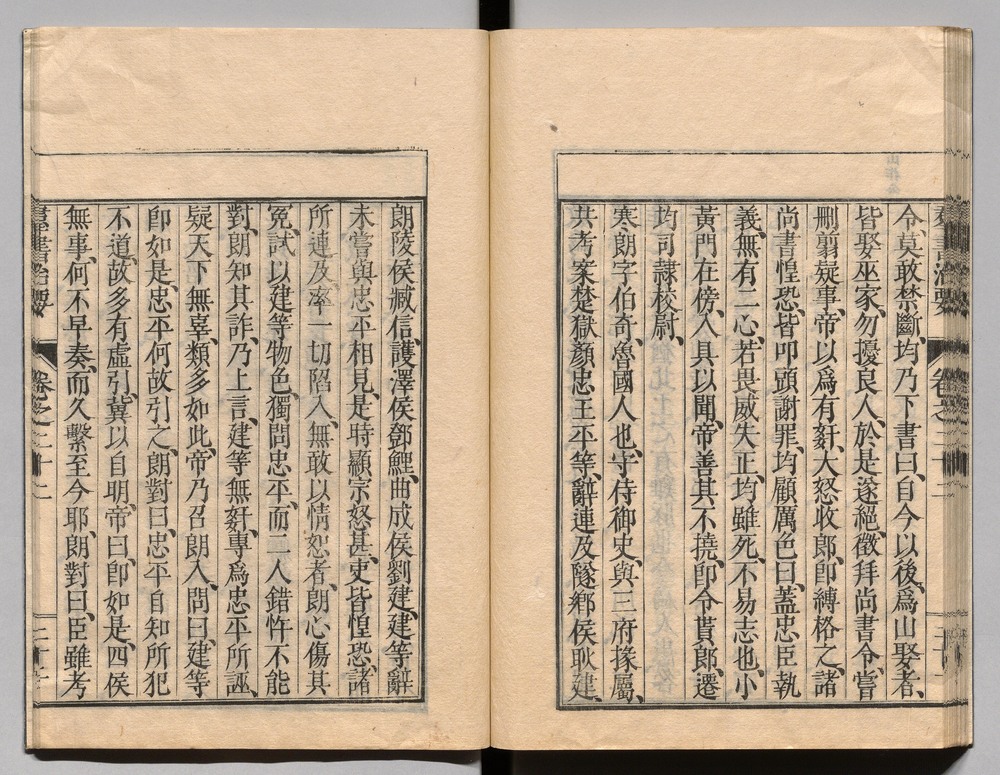 令、莫敢禁斷、均乃下書曰、自今以後、爲山娶者、
皆娶巫家、勿擾良人、於是遂絕、徵拜尚書令、嘗
刪翦疑事、帝以爲有姧、大怒收郎、卽縛格之、諸
尚書惶恐、皆叩頭謝罪、均顧厲色曰、蓋忠臣執
義、無有二心、若畏威失正、均雖死、不易志也、小
黃門在傍、入具以聞、帝善其不撓、卽令貰郎、遷
均司隸校尉、
寒朗字伯奇、魯國人也、守侍御史、與三府掾屬、
共考案楚獄顏忠王平等、辭連及隧鄉侯耿建、
朗陵侯臧信、護澤侯鄧鯉、曲成侯劉建、建等辭
未嘗與忠平相見、是時顯宗怒甚、吏皆惶恐、諸
所連及、率一切陷入、無敢以情恕者、朗心傷其
冤、試以建等物色、獨問忠平、而二人錯忤不能
對、朗知其詐、乃上言、建等無姧、專爲忠平所誣、
疑天下無辜、類多如此、帝乃召朗入、問曰、建等
卽如是、忠平何故引之、朗對曰、忠平自知所犯
不道、故多有虛引、冀以自明、帝曰、卽如是、四侯
無事、何不早奏、而久繫至今耶、朗對曰、臣雖考
羣書治要 卷之二十二